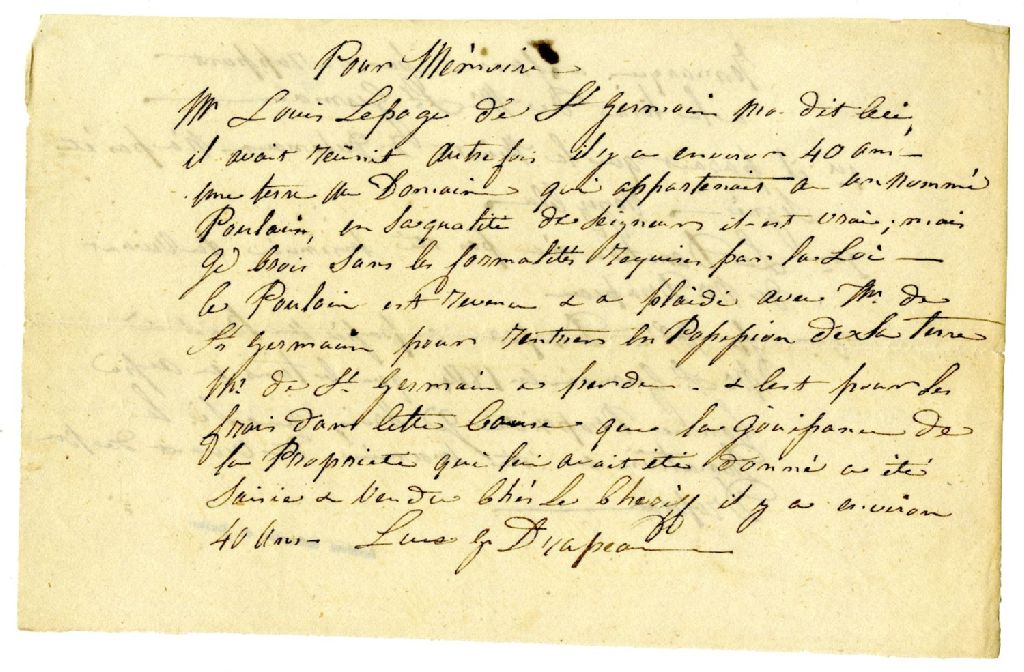 Pour Mémoire
Mr Louis Lepage de St Germain ma dit ici,
il avait réunit autrefois il y a environ 40 ans
une terre au Domaine qui appartenait a un nommé
Poulain, en sa qualité de seigneur il est vrai; mais
je crois sans les formalités requises par la Loi —
le Poulain est revenu & a plaidé avec Mr de
St Germain pour rentrer en Possession de la terre
Mr de St Germain a perdu. & c'est pour les
frais dans cette Cause que la jouissance de
la Propriete qui lui avait été donné a été
saisie & vendu chés le Sheriff il y a environ
40 ans — Luce G Drapeau